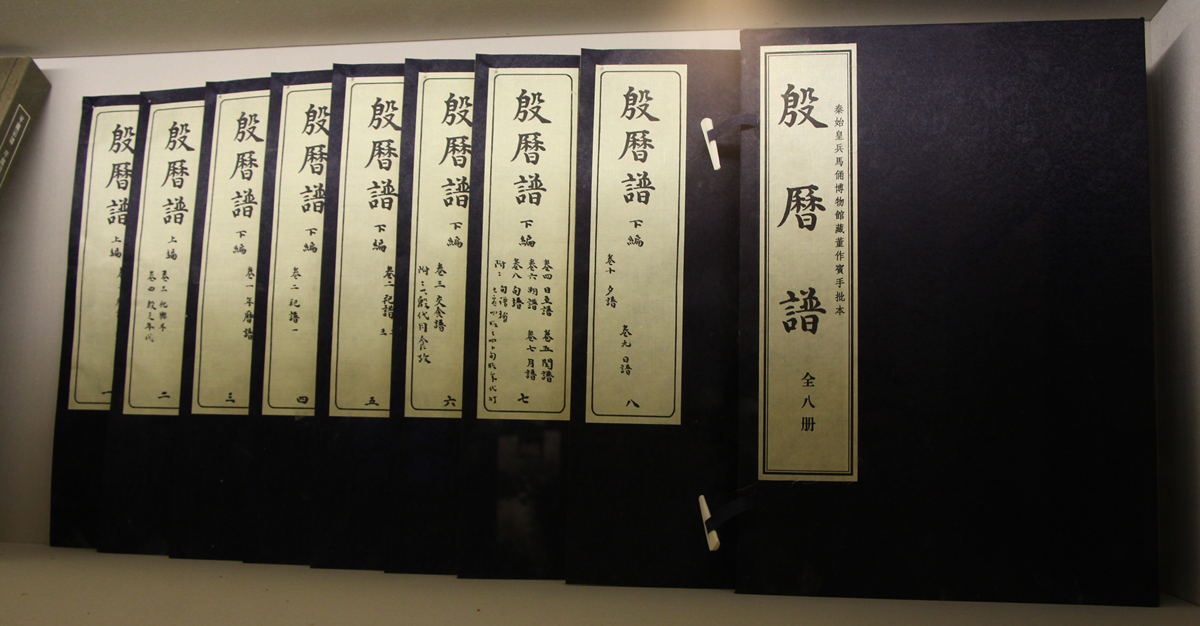 殷曆譜
上編
一
殷曆譜
上編
卷三 祀與年
卷四 殷之年代
二
殷曆譜
下編
卷一 年曆譜
三
殷曆譜
下編
卷二 祀譜一
四
殷曆譜
下編
卷二 祀譜
五
殷曆譜
下編
卷三 交食譜
六
殷曆譜
下編
卷四 日至譜 卷五 閏譜
卷六 朔譜 卷七 月譜
卷八 旬譜
七
殷曆譜
下編
卷十 夕譜
卷九 日譜
八
秦始皇兵馬俑博物館藏董作賓手批本
殷曆譜
全八册